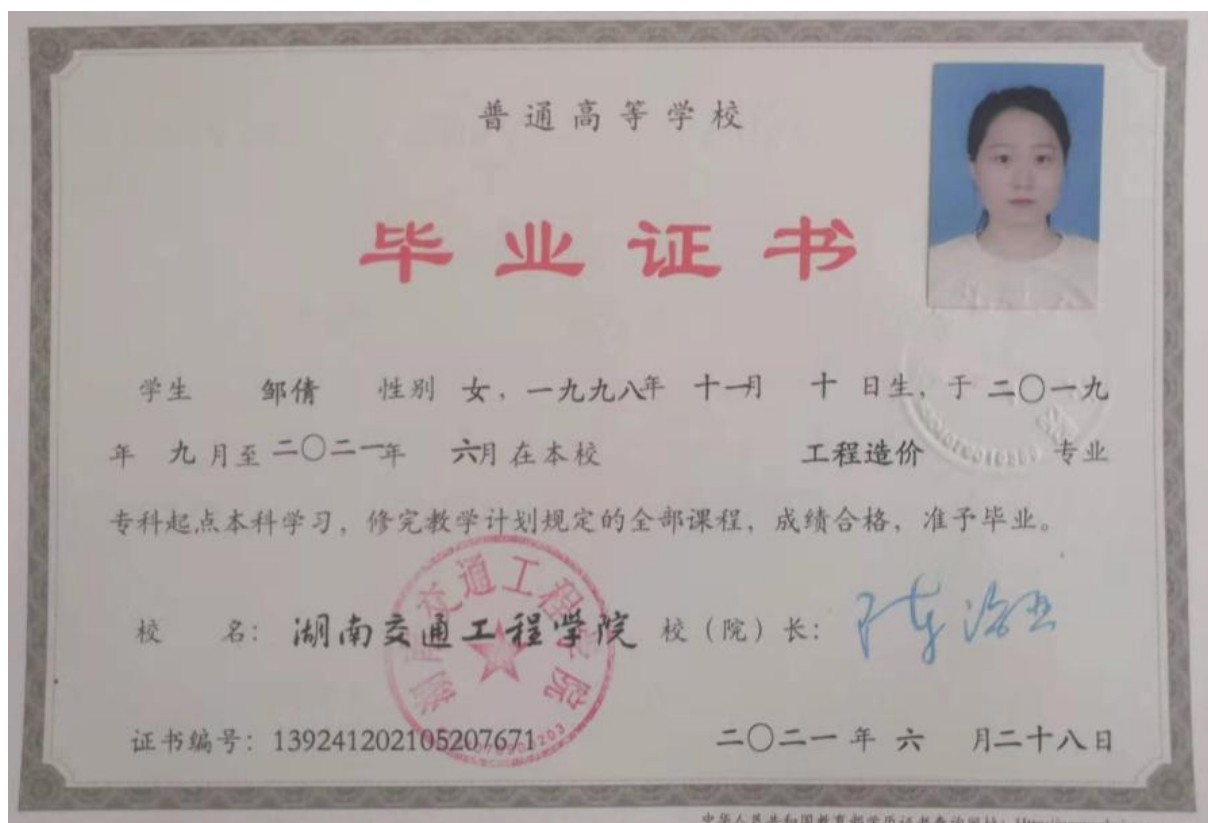 普通高等学校
毕业证书
学生 邹倩 性别 女，一九九八年 十一月 十 日生，于 二〇一九
年 九 月至 二〇二一年 六月在本校 工程造价 专业
专科起点本科学习，修完教学计划规定的全部课程，成绩合格，准予毕业。
校 名：湖南交通工程學院 校（院）长：
湖南交通工程学院
证书编号：139241202105207671 二〇二一 年 六 月二十八日
中华人民共和国教育部学历证书查询网址：